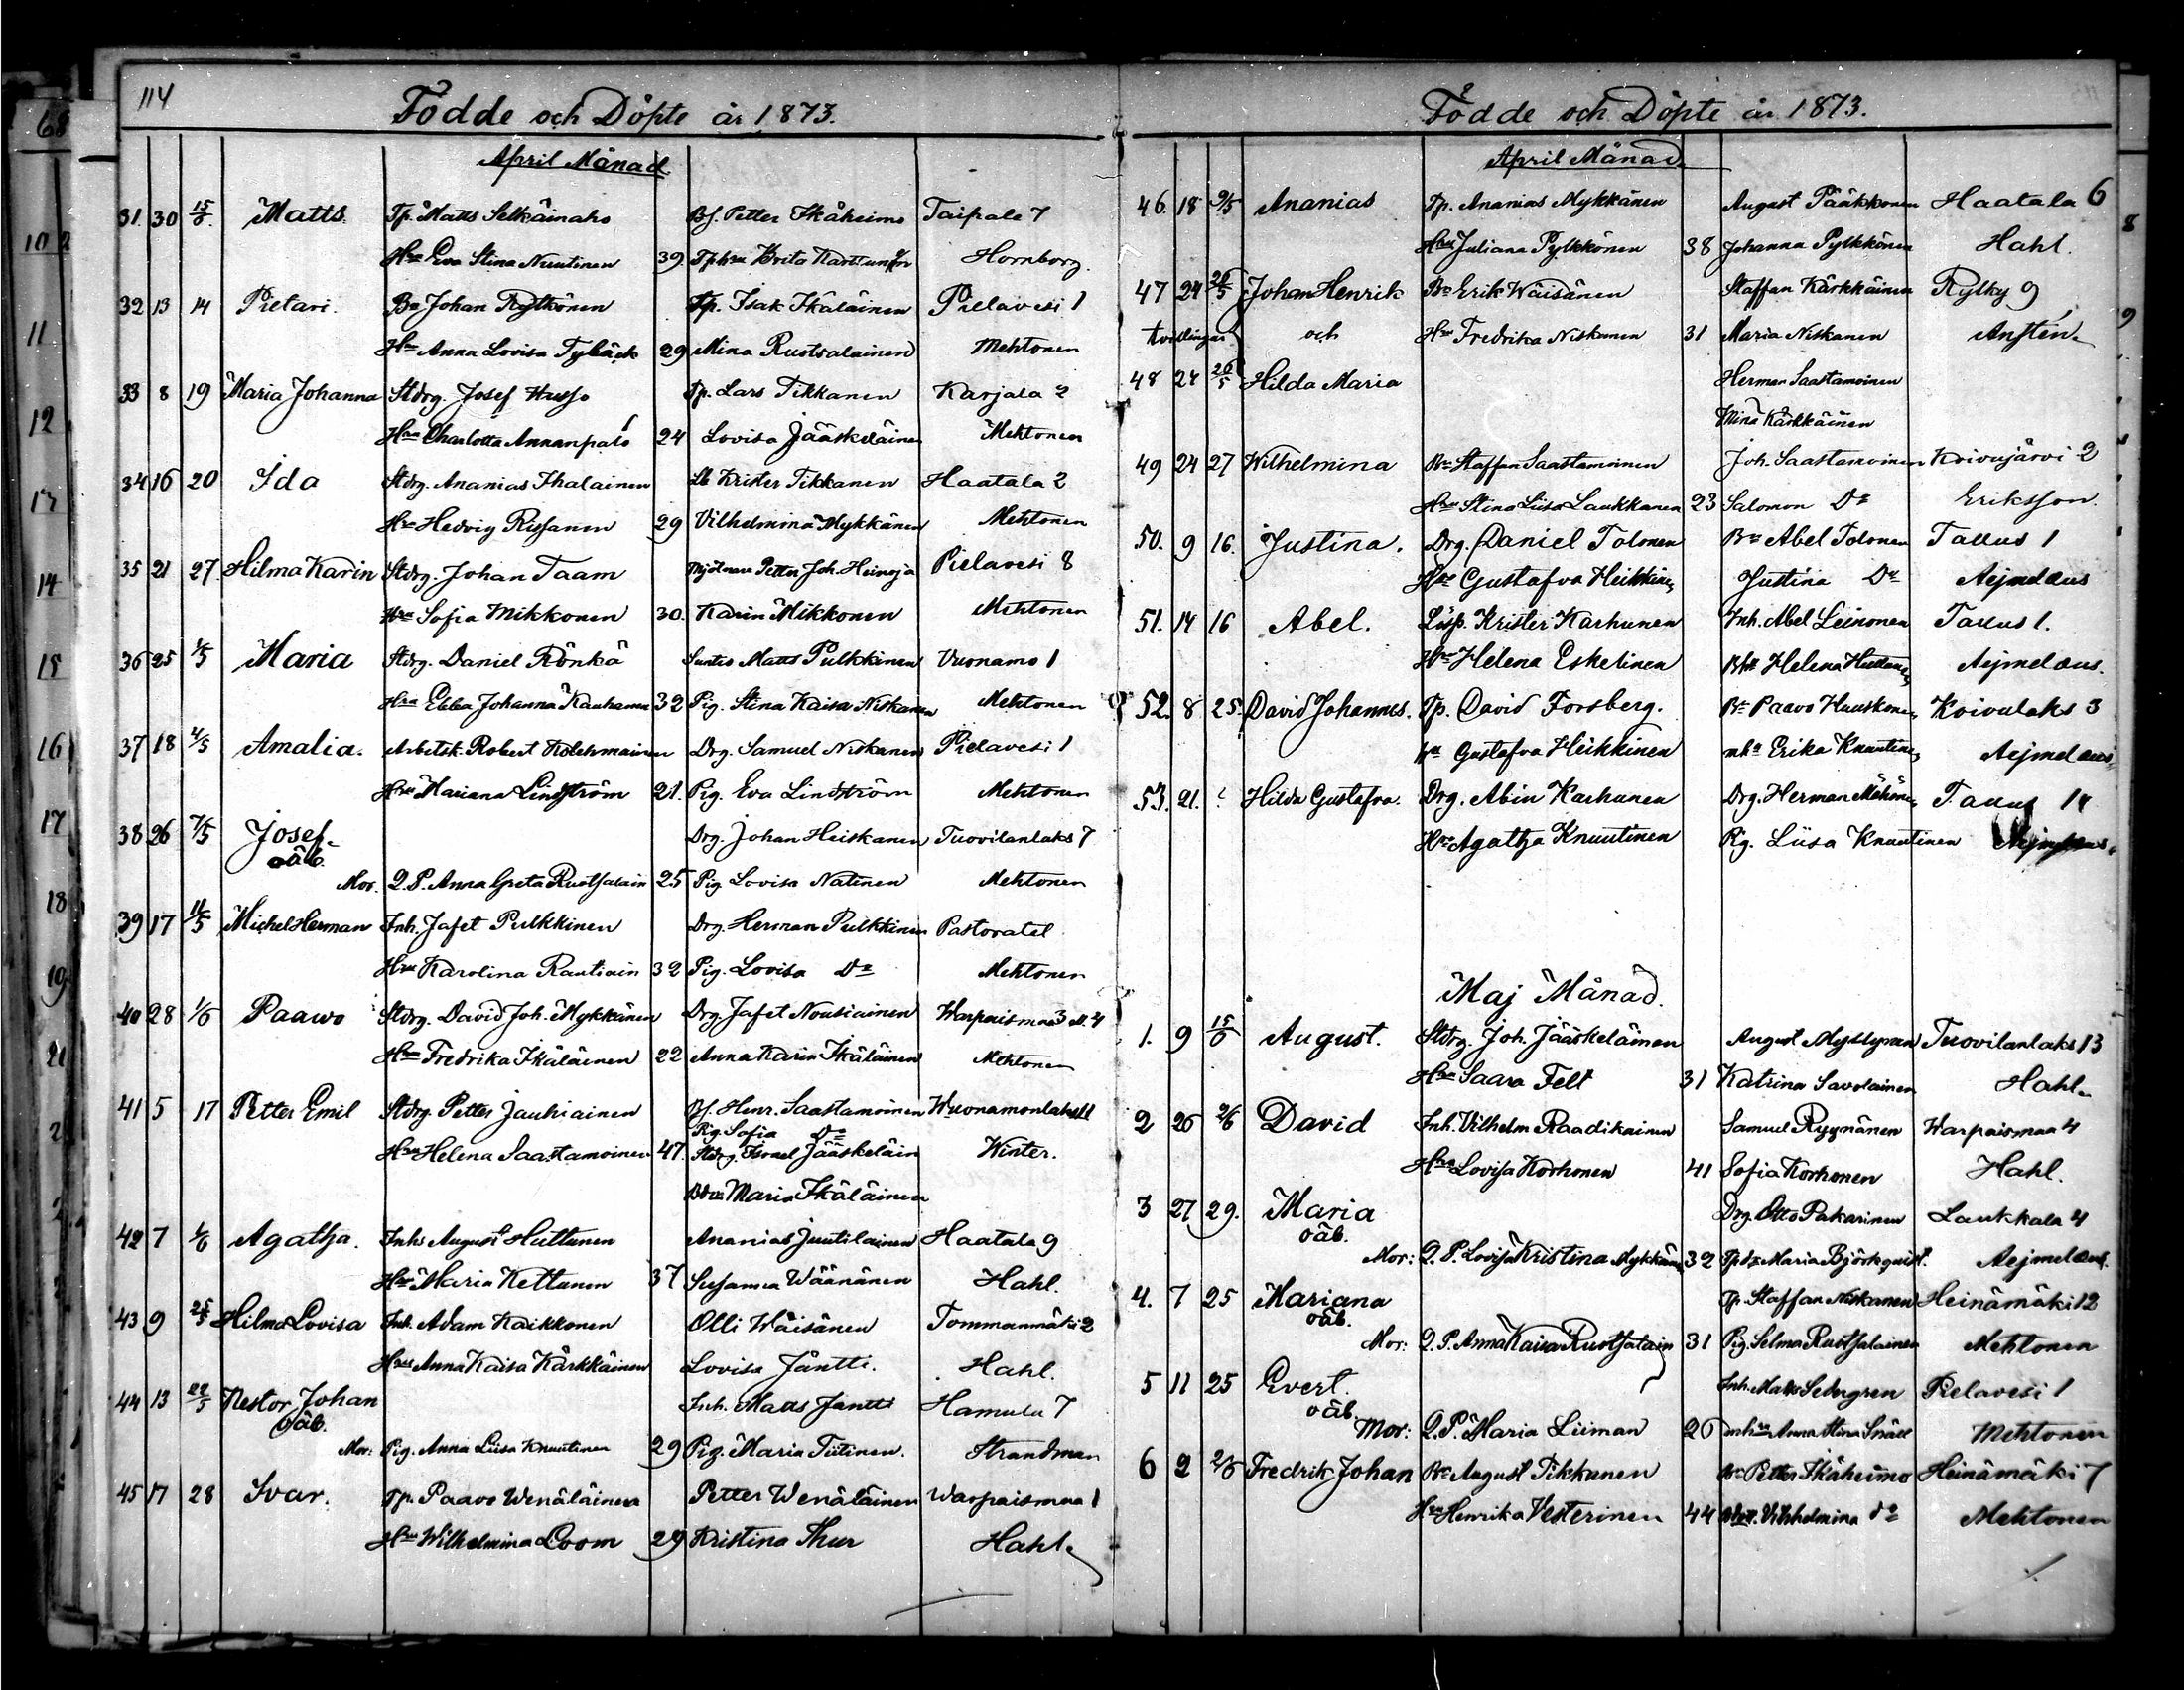 114
Födde och Döpte år 1873.
April Månad
31. 30 15/6. Matts. Tp. Matts Selkäinaho Bf. Petter Ikäheimo Taipale 7
Hru Eva Stina Nuutinen 39. Tphru Brita Karttunen Hornborg.
32 13 14 Pietari. Be Johan Rytkönen Tp. Isak Ikäläinen Pielavesi 1
Hru Anna Lovisa Tybäck 29 Mina Ruotsalainen Mehtonen
33 8 19 Maria Johanna Stdrg. Josef Husso Tp. Lars Tikkanen Karjala 2
Hru Charlotta Annanpalo 24 Lovisa Jääskeläinen Mehtonen
34 16 20 Ida Stdrg. Ananias Ihalainen Krister Tikkanen Haatala 2
Hru Hedvig Rissanen 29 Vilhelmina Mykkänen Mehtonen
35 21 27 Hilma Karin Stdrg. Johan Taam Petter Joh. Heinoja Pielavesi 8
Hru Sofia Mikkonen 30. Karin Mikkonen Mehtonen
36 25 1/5 Maria Stdrg. Daniel Rönkä Suntio Matts Pulkkinen Vuonamo 1
Hru Ebba Johanna Kauhanen 32 Pig. Stina Kaisa Niskanen Mehtonen
37 18 4/5 Amalia. Arbetsk. Robert Kolehmainen Drg. Samuel Niskanen Pielavesi 1
Hru Mariana Lindström 21. Pig. Eva Lindström Mehtonen
38 26 7/5 Josef Drg. Johan Heiskanen Tuovilanlaks 7
oäb.
Mor. Q.P. Anna Greta Ruotsalain 25 Pig. Lovisa Natinen Mehtonen
39 17 11/5 Michel Herman Inh. Jafet Pulkkinen Drg. Herman Pulkkinen Pastoratet
Hru Karolina Rautiain 32 Pig. Lovisa Do Mehtonen
40 28 1/6 Paawo Stdrg. David Joh. Mykkänen Drg. Jafet Nousiainen Warpaismaa 3 4
Hru Fredrika Ikäläinen 22 Anna Karin Ikäläinen Mehtonen
41 5 17 Petter Emil Stdrg. Petter Jauhiainen Bf. Henr. Saastamoinen Wuonamonlaks 11
Pig. Sofia Do
Hru Helena Saastamoinen 47. Stdrg. Israel Jääskeläin Winter.
Maria Ikäläinen
42 7 1/6 Agatha. Inh. August Huttunen Ananias Juutilainen Haatala 9
Hru Maria Kettunen 37 Susanna Wäänänen Hahl.
43 9 25/5 Hilma Lovisa Inh. Adam Kaikkonen Olli Wäisänen Tommanmäki 2
Hru Anna Kaisa Kärkkäinen Lovisa Jäntti. Hahl.
44 13 22/5 Nestor Johan Inh. Matts Jäntti Hamula 7
oäb.
Mor: Pig. Anna Liisa Knuutinen 29 Pig. Maria Tiitinen. Strandman
45 17 28 Ivar. Tp. Paavo Wenäläinen Petter Wenäläinen Warpaismaa 1
Hru Wilhelmina Loom 29 Kristina Thur Hahl.
Födde och Döpte år 1873.
April Månad.
46. 18 9/5 Ananias Tp. Ananias Mykkänen August Pääkkonen Haatala 6
Hru Juliana Pylkkönen 38 Johanna Pylkkönen Hahl.
47 24 26/5 Johan Henrik Be Erik Wäisänen Staffan Kärkkäinen Rytky 9
tvillingar och Hru Fredrika Niskanen 31 Maria Niskanen Anstén.
48 24 26/5 Hilda Maria Herman Saastamoinen
Mina Kärkkäinen
49 24 27 Wilhelmina Be Staffan Saastamoinen Joh. Saastamoinen Koivujärvi 2
Hru Stina Liisa Laukkanen 23 Salomon Do Eriksson.
50. 9 16. Justina. Drg. Daniel Tolonen Be Abel Tolonen Tallus 1
Hru Gustafva Heikkinen Justina Do Aejmelæus
51. 14 16 Abel. Lösp. Krister Karhunen Inh. Abel Leinonen Tallus 1.
Hru Helena Eskelinen Helena Huttunen Aejmelæus.
52. 8 25. David Johannes. Tp. David Forsberg. Be Paavo Hauskonen Koivulaks 3
Hru Gustafva Heikkinen Erika Knuutinen Aejmelæus
53. 21. Hilda Gustafva. Drg. Abin Karhunen Drg. Herman Mähönen Tallus 14
Hru Agatha Knuutinen Pig. Liisa Knuutinen Aejmelæus.
Maj Månad.
1. 9 15/6 August. Stdrg. Joh. Jääskeläinen August Myllynen Tuovilanlaks 13
Hru Saara Felt 31 Katrina Savolainen Hahl.
2 26 2/6 David Inh. Vilhelm Raadikainen Samuel Ryynänen Warpaismaa 4
Hru Lovisa Korhonen 41 Sofia Korhonen Hahl.
3 27 29. Maria Drg. Otto Pakarinen Laukkala 4
oäb.
Mor: Q.P. Lovisa Kristina Mykkänen 32 Maria Björkqvist. Aejmelæus.
4. 7 25 Mariana Tp. Staffan Niskanen Heinämäki 12
oäb.
Mor: Q.P. Anna Kaisa Ruotsalain 31 Pig. Selma Ruotsalainen Mehtonen
5 11 25 Evert. Inh. Matts Sedergren Pielavesi 1
oäb.
Mor: Q.P. Maria Liiman 26 Inhru Anna Stina Snäll Mehtonen
6 2 2/6 Fredrik Johan Be August Tikkanen Be Petter Ikäheimo Heinämäki 7
Hru Henrika Vesterinen 44 Vilhelmina do Mehtonen